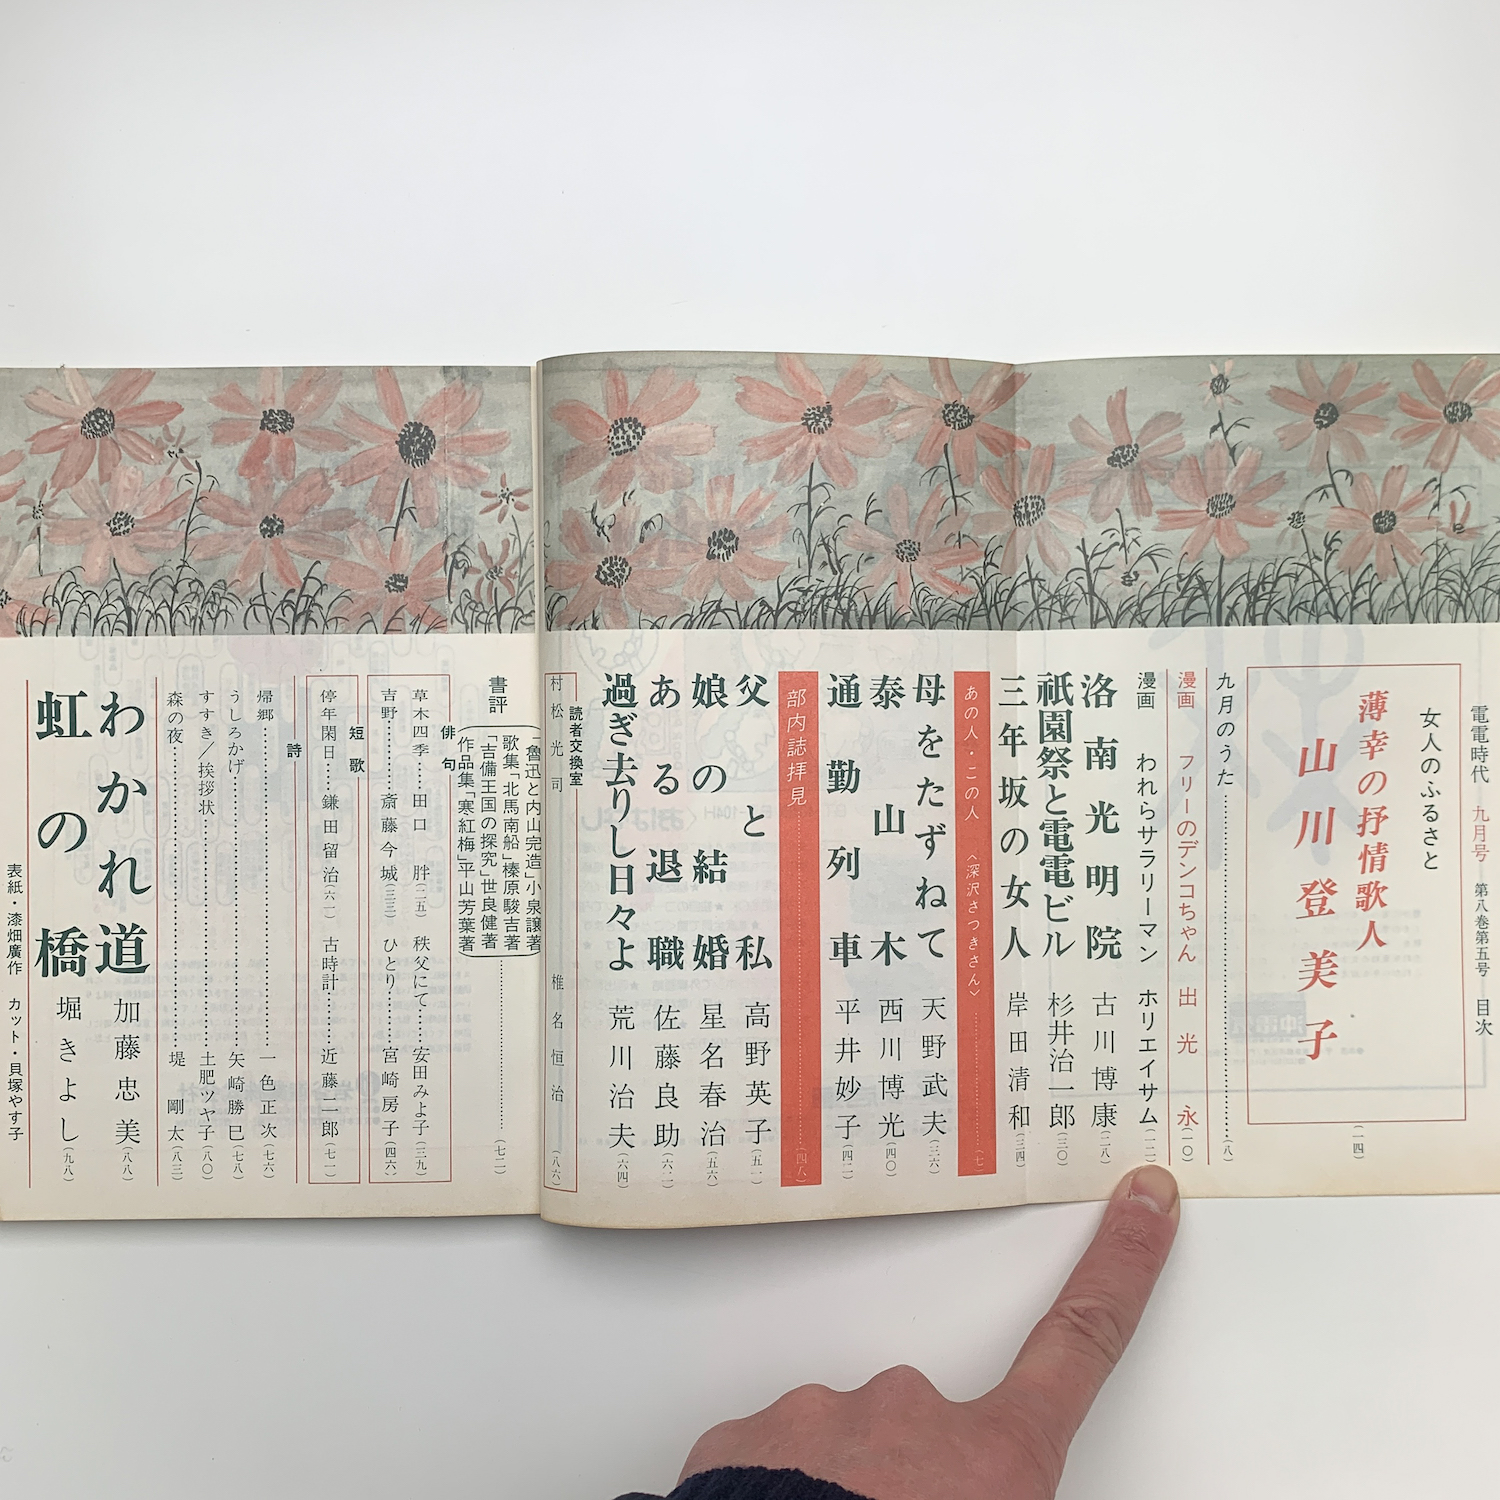 電電時代 九月号 第八巻第五号 目次
女人のふるさと
薄幸の抒情歌人
山川登美子 (一四)
九月のうた (八)
漫画 フリーのデンコちゃん 出光永 (一〇)
漫画 われらサラリーマン ホリエイサム (一二)
洛南光明院 古川博康 (二八)
祇園祭と電電ビル 杉井治一郎 (三〇)
三年坂の女人 岸田清和 (三四)
あの人・この人 〈深沢さつきさん〉 (七)
母をたずねて 天野武夫 (三六)
泰山木 西川博光 (四〇)
通勤列車 平井妙子 (四二)
部内誌拝見 (四八)
父と私 高野英子 (五一)
娘の結婚 星名春治 (五六)
ある退職 佐藤良助 (六二)
過ぎ去りし日々よ 荒川治夫 (六四)
読者交換室
村松光司 椎名恒治 (八六)
書評
「魯迅と内山完造」小泉譲著
歌集「北馬南船」榛原駿吉著
「吉備王国の探究」世良健著
作品集「寒紅梅」平山芳葉著
(七二)
俳句
草木四季 田口胖 (二五) 秩父にて 安田みよ子 (三九)
吉野 斎藤今城 (三三) ひとり 宮崎房子 (四六)
短歌
停年閑日 鎌田留治 (六一) 古時計 近藤二郎 (七一)
詩
帰郷 一色正次 (七六)
うしろかげ 矢崎勝巳 (七八)
すすき/挨拶状 土肥ツヤ子 (八〇)
森の夜 堤剛太 (八三)
わかれ道 加藤忠美 (八八)
虹の橋 堀きよし (九八)
表紙・漆畑廣作 カット・貝塚やす子